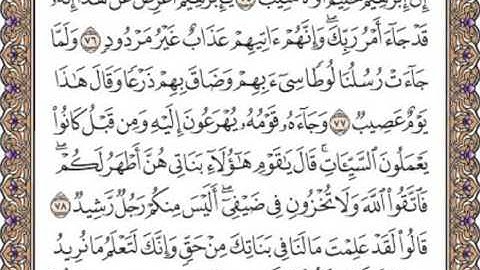 إِنَّ إِبْرَٰهِيمَ لَحَلِيمٌ أَوَّٰهٌ مُّنِيبٌ ٧٥ يَٰٓإِبْرَٰهِيمُ أَعْرِضْ عَنْ هَٰذَآ إِنَّهُۥ
قَدْ جَآءَ أَمْرُ رَبِّكَ ۖ وَإِنَّهُمْ ءَاتِيهِمْ عَذَابٌ غَيْرُ مَرْدُودٍ ٧٦ وَلَمَّا
جَآءَتْ رُسُلُنَا لُوطًا سِىٓءَ بِهِمْ وَضَاقَ بِهِمْ ذَرْعًا وَقَالَ هَٰذَا
يَوْمٌ عَصِيبٌ ٧٧ وَجَآءَهُۥ قَوْمُهُۥ يُهْرَعُونَ إِلَيْهِ وَمِن قَبْلُ كَانُوا۟
يَعْمَلُونَ ٱلسَّيِّـَٔاتِ ۚ قَالَ يَٰقَوْمِ هَٰٓؤُلَآءِ بَنَاتِى هُنَّ أَطْهَرُ لَكُمْ ۖ
فَٱتَّقُوا۟ ٱللَّهَ وَلَا تُخْزُونِ فِى ضَيْفِىٓ ۖ أَلَيْسَ مِنكُمْ رَجُلٌ رَّشِيدٌ ٧٨
قَالُوا۟ لَقَدْ عَلِمْتَ مَا لَنَا فِى بَنَاتِكَ مِنْ حَقٍّ وَإِنَّكَ لَتَعْلَمُ مَا نُرِيدُ